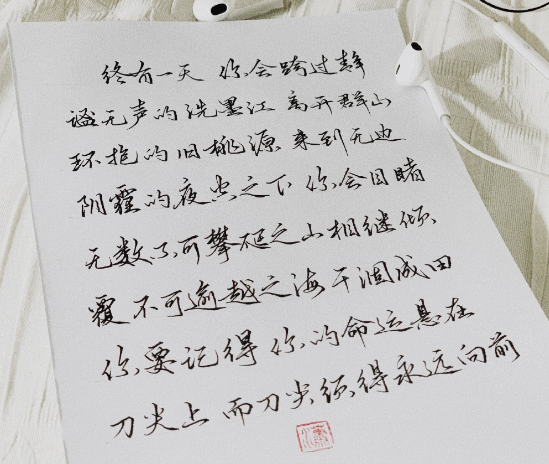 终有一天 你会跨过静
谧无声的洗墨江 离开群山
环抱的旧桃源 来到无边
阴霾的夜空之下 你会目睹
无数不可攀延之山相继倾
覆 不可逾越之海干涸成田
你要记得 你的命运悬在
刀尖上 而刀尖须得永远向前